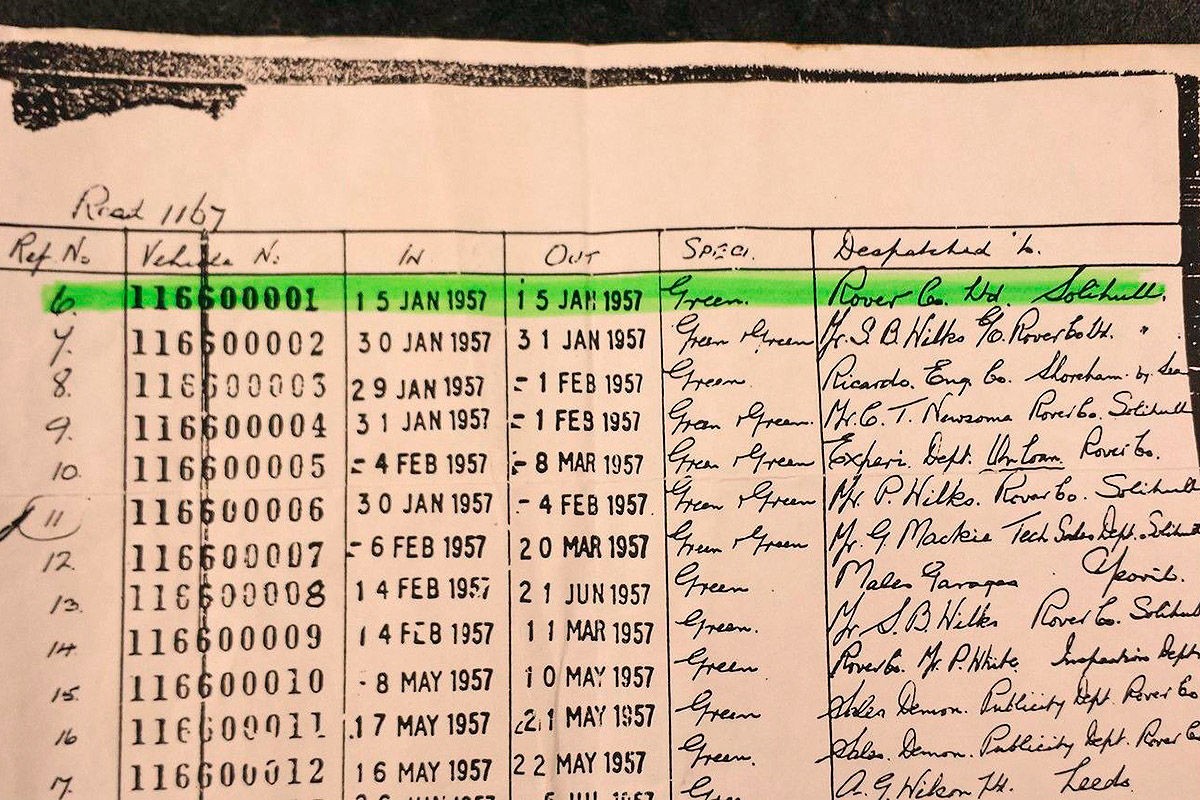 Road 1167
Ref No Vehicle No. IN OUT SPECI. Despatched to.
6. 116600001 15 JAN 1957 15 JAN 1957 Green. Rover Co. Ltd. Solihull.
7. 116600002 30 JAN 1957 31 JAN 1957 Green + Green Mr. S. B. Wilks C/o. Rover Co Ltd. "
8. 116600003 29 JAN 1957 - 1 FEB 1957 Green. Ricardo. Eng. Co. Shoreham. by Sea
9. 116600004 31 JAN 1957 - 1 FEB 1957 Green + Green. Mr. C. T. Newsome Rover Co. Solihull
10. 116600005 - 4 FEB 1957 - 8 MAR 1957 Green + Green Experi. Dept. On Loan. Rover Co.
11 116600006 30 JAN 1957 - 4 FEB 1957 Green + Green Mr. P. Wilks. Rover Co. Solihull
12. 116600007 - 6 FEB 1957 20 MAR 1957 Green + Green Mr. G. Mackie Tech Sales Dept. Solihull
13. 116600008 14 FEB 1957 21 JUN 1957 Green Males Garages Yeovil.
14. 116600009 14 FEB 1957 11 MAR 1957 Green. Mr. S. B. Wilks Rover Co. Solihull
15. 116600010 - 8 MAY 1957 10 MAY 1957 Green Rover Co. Mr. P. White. Inspection Dept
16 116600011 17 MAY 1957 21 MAY 1957 Green Sales Demon. Publicity Dept. Rover Co
116600012 16 MAY 1957 22 MAY 1957 Green. Sales. Demon. Publicity Dept. Rover Co
A. G. Wilson Ltd. Leeds.